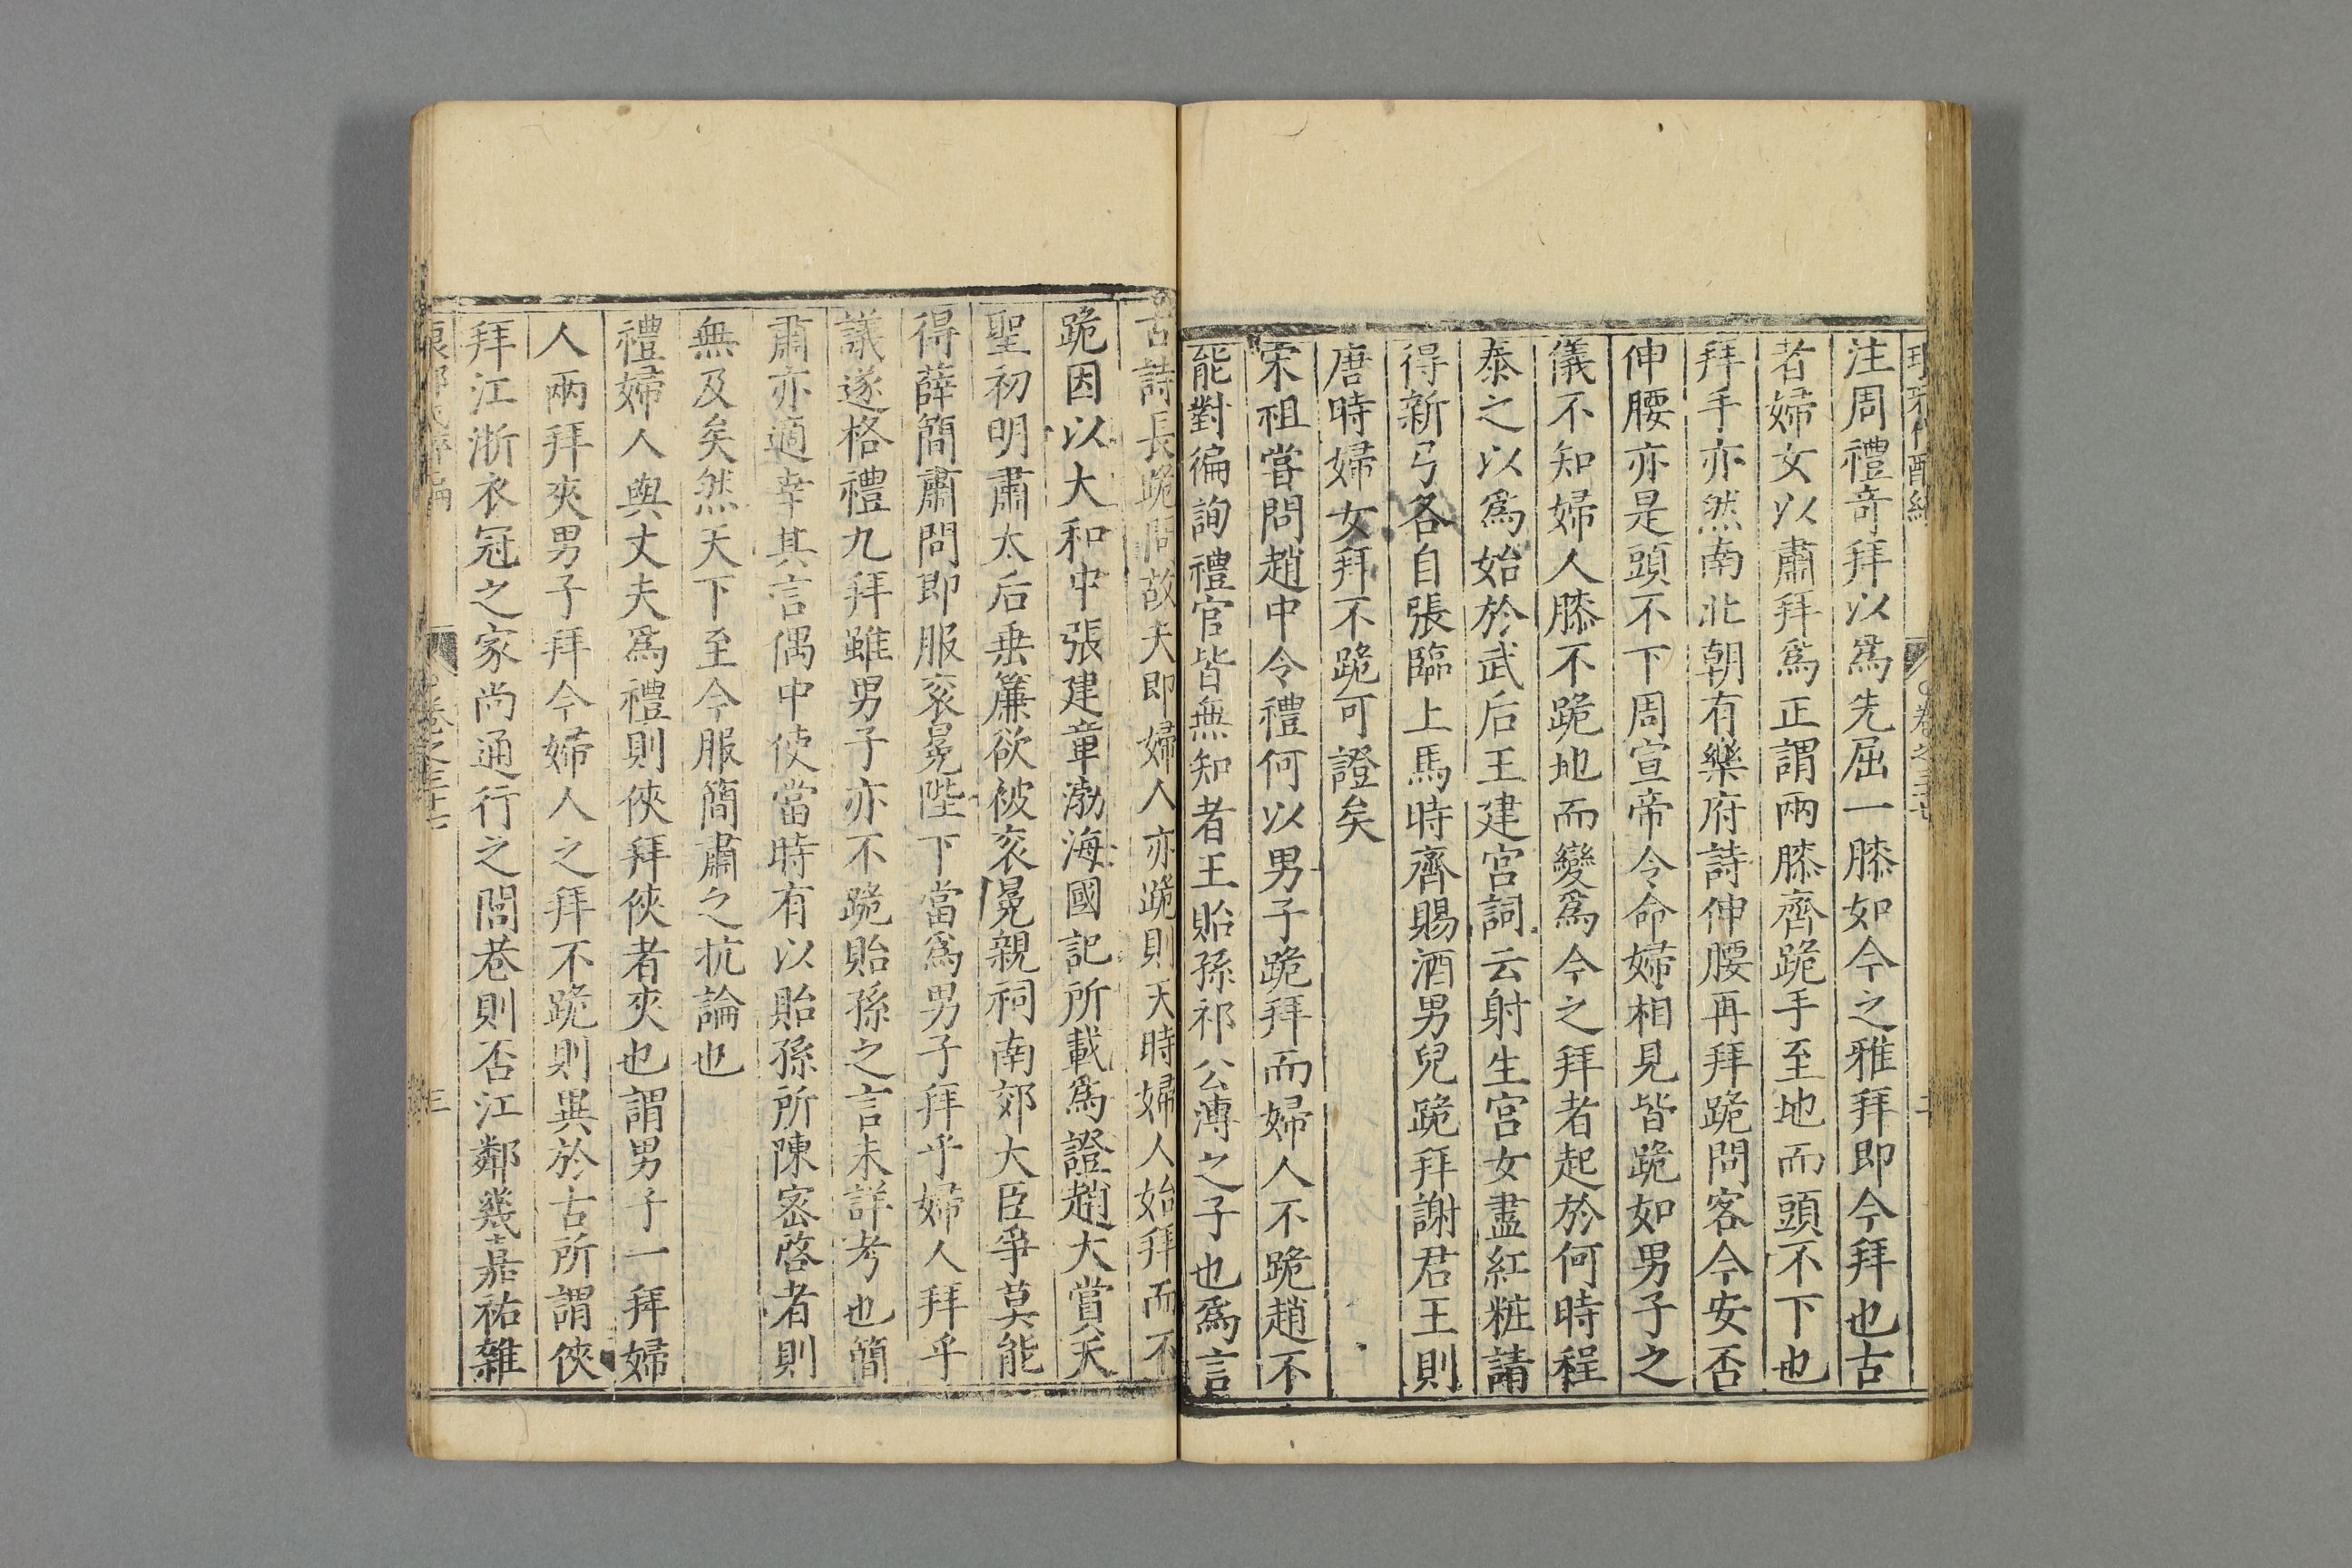 注周禮竒拜以爲先屈一膝如今之雅拜即今拜也古
者婦女以肅拜爲正謂兩膝齊跪手至地而頭不下也
拜手亦然南北朝有樂府詩伸腰再拜跪問客今安否
伸腰亦是頭不下周宣帝令命婦相見皆跪如男子之
儀不知婦人膝不跪地而變爲今之拜者起於何時程
泰之以爲始於武后王建宫詞云射生宫女盡紅粧請
得新弓各自張臨上馬時齊賜酒男兒跪拜謝君王則
唐時婦女拜不跪可證矣
宋祖嘗問趙中令禮何以男子跪拜而婦人不跪趙不
能對徧詢禮官皆無知者王貽孫祁公溥之子也爲言
古詩長跪問故夫即婦人亦跪則天時婦人始拜而不
跪因以大和中張建章渤海國記所載爲證趙大賞天
聖初明肅太后垂簾欲被衮冕親祠南郊大臣爭莫能
得薛簡肅問即服衮冕陛下當爲男子拜乎婦人拜乎
議遂格禮九拜雖男子亦不跪貽孫之言未詳考也簡
肅亦適幸其言偶中使當時有以貽孫所陳宻啓者則
無及矣然天下至今服簡肅之抗論也
禮婦人與丈夫爲禮則俠拜俠者夾也謂男子一拜婦
人兩拜夾男子拜今婦人之拜不跪則異於古所謂俠
拜江浙衣冠之家尚通行之閭巷則否江鄰幾嘉祐雜
卷之三十七
三